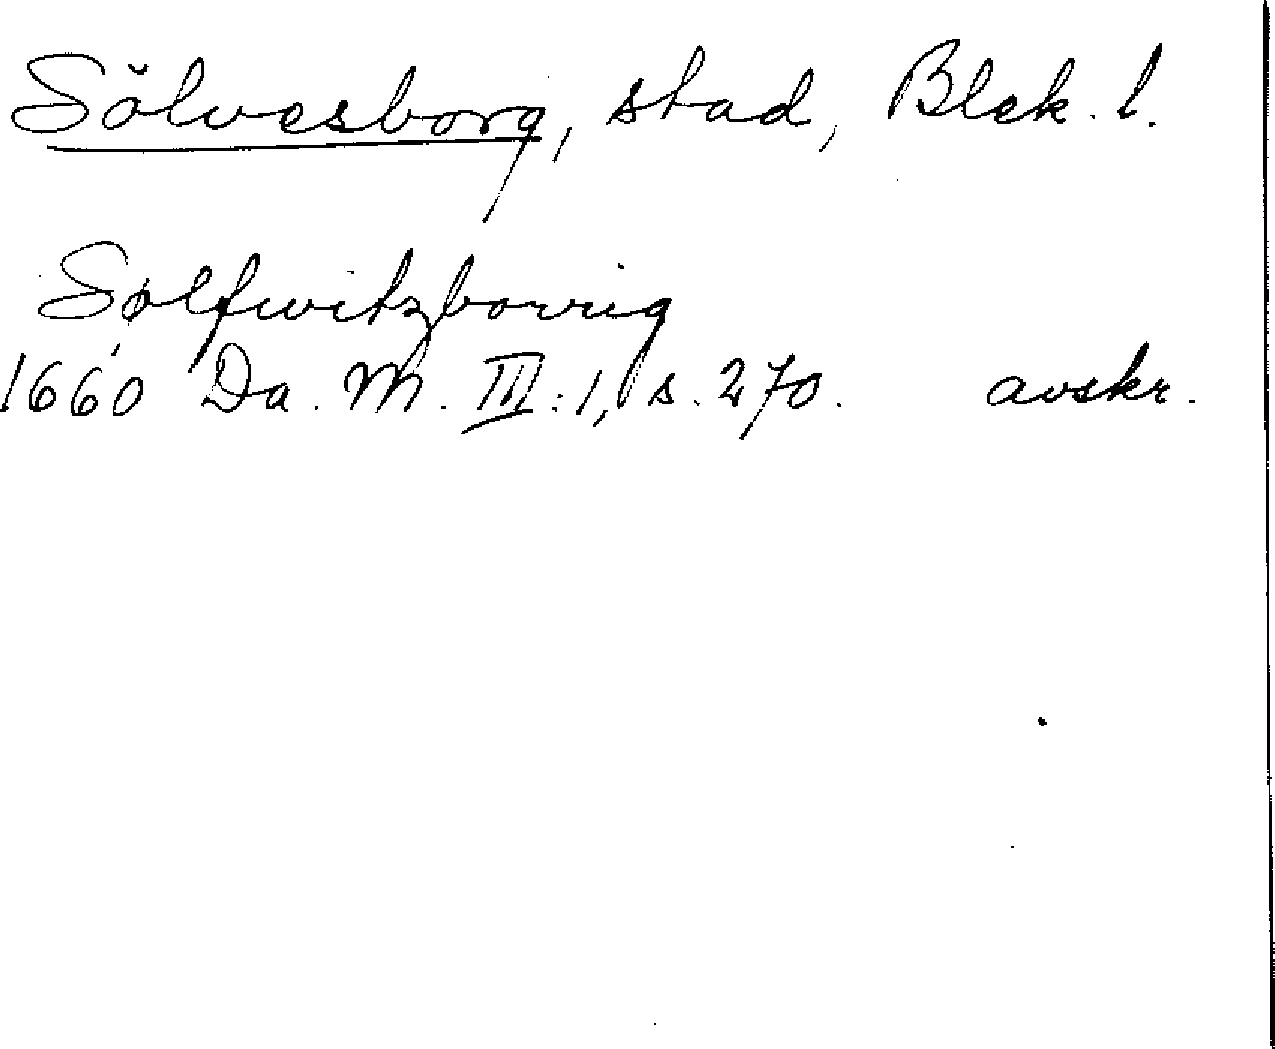 Sölvesborg, stad, Blek. l.
Sølfwitzborrig
1660 Da. M. III:1, s. 270. avskr.